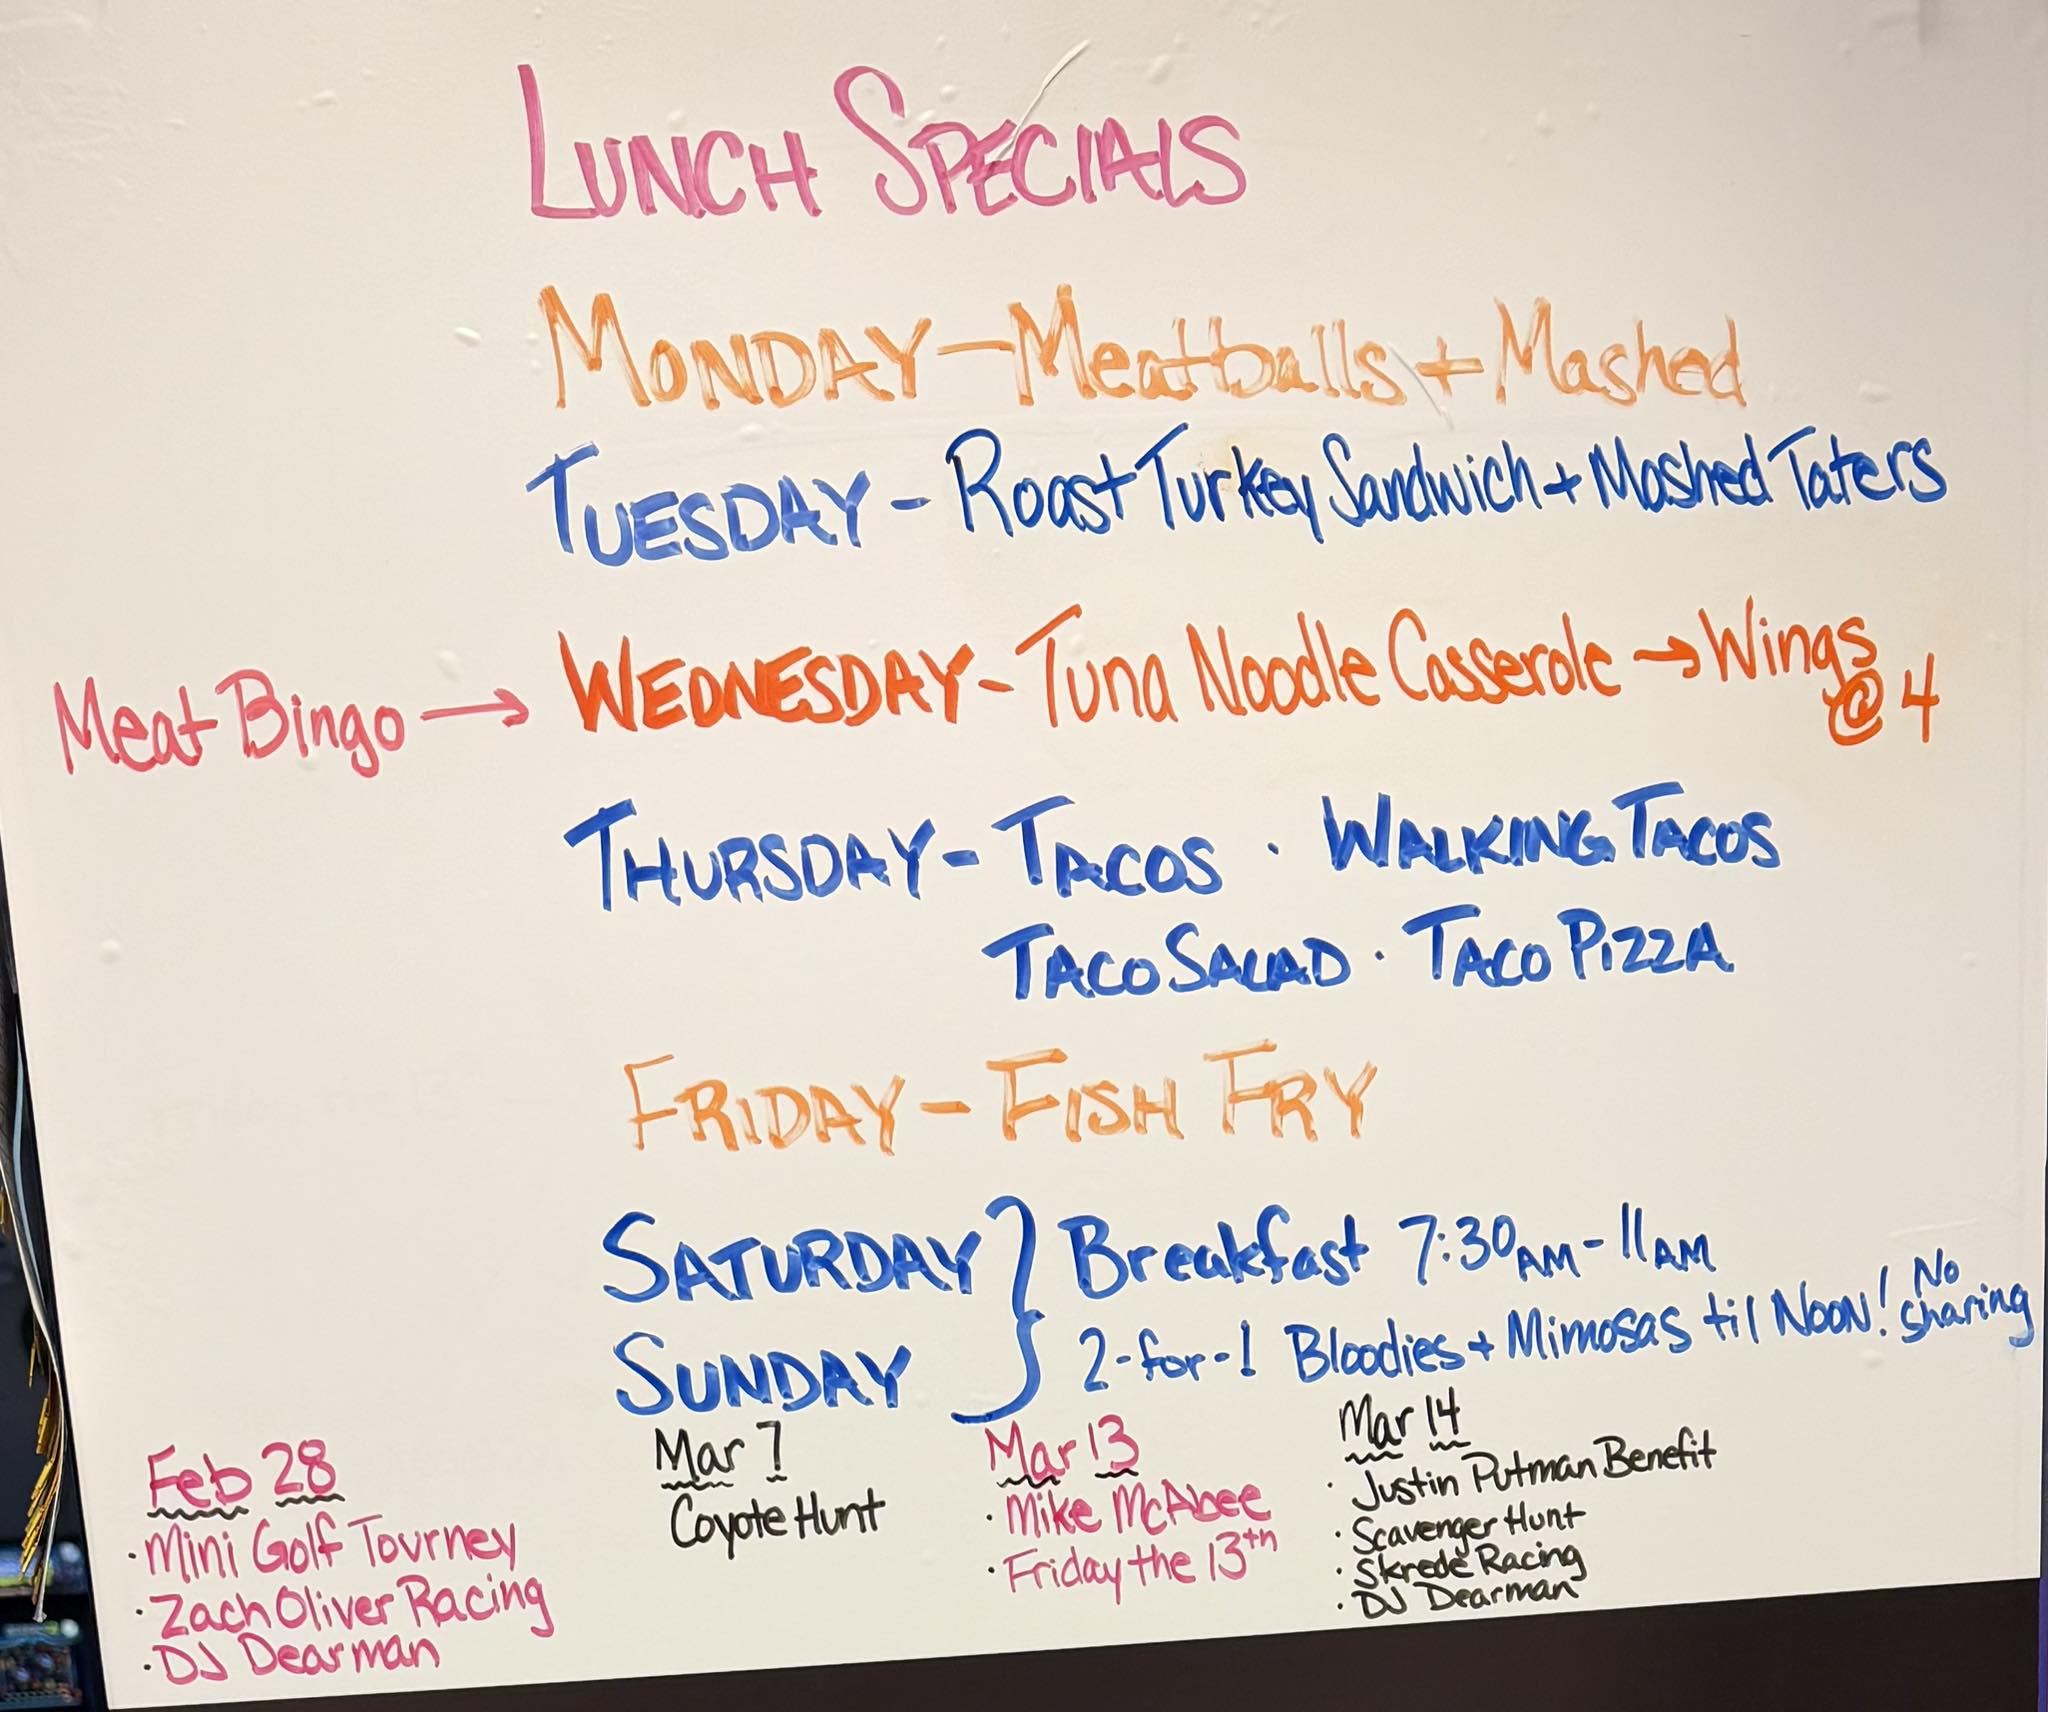 LUNCH SPECIALS
MONDAY - Meatballs + Mashed
TUESDAY - Roast Turkey Sandwich + Mashed Taters
Meat Bingo → WEDNESDAY - Tuna Noodle Casserole → Wings
@ 4
THURSDAY - TACOS · WALKING TACOS
TACO SALAD · TACO PIZZA
FRIDAY - FISH FRY
SATURDAY } Breakfast 7:30AM - 11AM
SUNDAY } 2-for-1 Bloodies + Mimosas til NOON! No sharing
Feb 28
· Mini Golf Tourney
· Zach Oliver Racing
· DJ Dearman
Mar 7
Coyote Hunt
Mar 13
· Mike McAbee
· Friday the 13th
Mar 14
· Justin Putman Benefit
· Scavenger Hunt
· Skrede Racing
· DJ Dearman